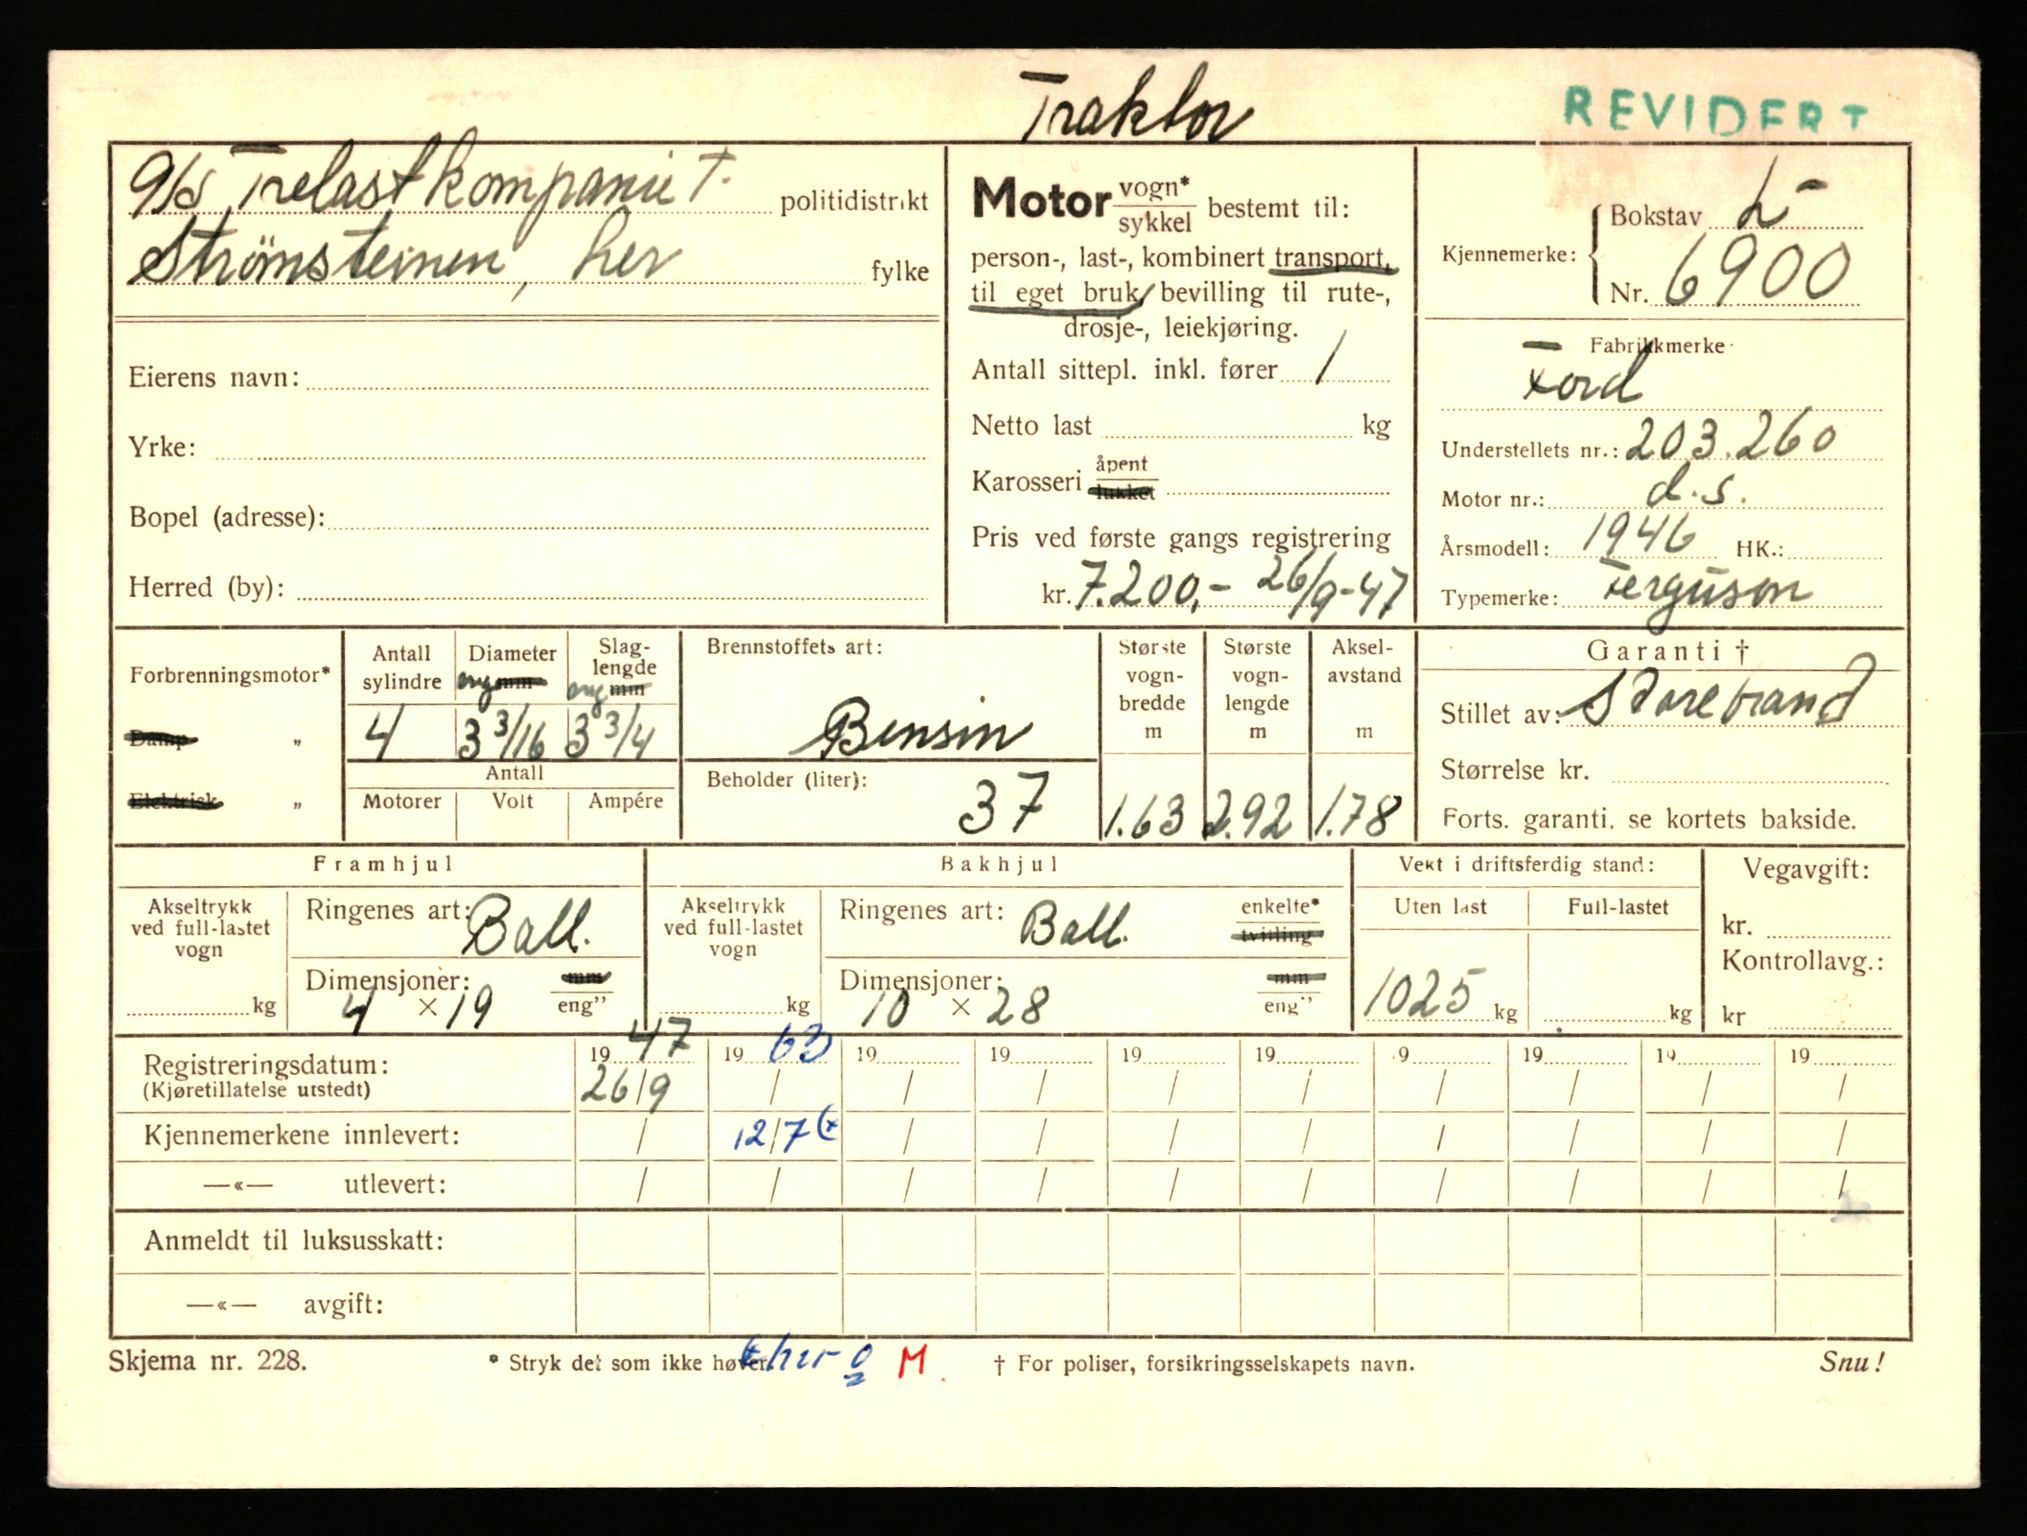 Traktor
REVIDERT
A/S Trelastkompaniet. politidistrikt
Strömsteinen, her fylke
Eierens navn:
Yrke:
Bopel (adresse):
Herred (by):
Motor vogn* sykkel bestemt til:
person-, last-, kombinert transport,
til eget bruk, bevilling til rute-,
drosje-, leiekjøring.
Antall sittepl. inkl. fører 1
Netto last kg
Karosseri åpent lukket
Pris ved første gangs registrering
kr. 7.200,- 26/9-47
Kjennemerke: Bokstav L-
Nr. 6900
Fabrikkmerke
Ford
Understellets nr.: 203.260
Motor nr.: d.s.
Årsmodell: 1946 HK.:
Typemerke: Ferguson
Forbrenningsmotor*
Damp "
Elektrisk "
Antall sylindre
4
Diameter eng mm
3 3/16
Slag-lengde eng mm
3 3/4
Antall
Motorer Volt Ampére
Brennstoffets art:
Bensin
Beholder (liter):
37
Største vogn-bredde m
1.63
Største vogn-lengde m
2.92
Aksel-avstand m
1.78
Garanti †
Stillet av: Storebrand
Størrelse kr.
Forts. garanti. se kortets bakside.
Framhjul
Akseltrykk
ved full-lastet
vogn
kg
Ringenes art: Ball.
Dimensjoner: mm
4 × 19 eng"
Bakhjul
Akseltrykk
ved full-lastet
vogn
kg
Ringenes art: Ball. enkelte* tvilling
Dimensjoner: mm
10 × 28 eng"
Vekt i driftsferdig stand:
Uten last Full-lastet
1025 kg kg
Vegavgift:
kr.
Kontrollavg.:
kr
Registreringsdatum: 19 47 19 63 19 19 19 19 19 19 19 19
(Kjøretillatelse utstedt) 26/9 / / / / / / / / /
Kjennemerkene innlevert: / 12/7 (x / / / / / / / /
—«— utlevert: / / / / / / / / / /
Anmeldt til luksusskatt:
—«— avgift:
Skjema nr. 228. * Stryk det som ikke høver. M. † For poliser, forsikringsselskapets navn. Snu!